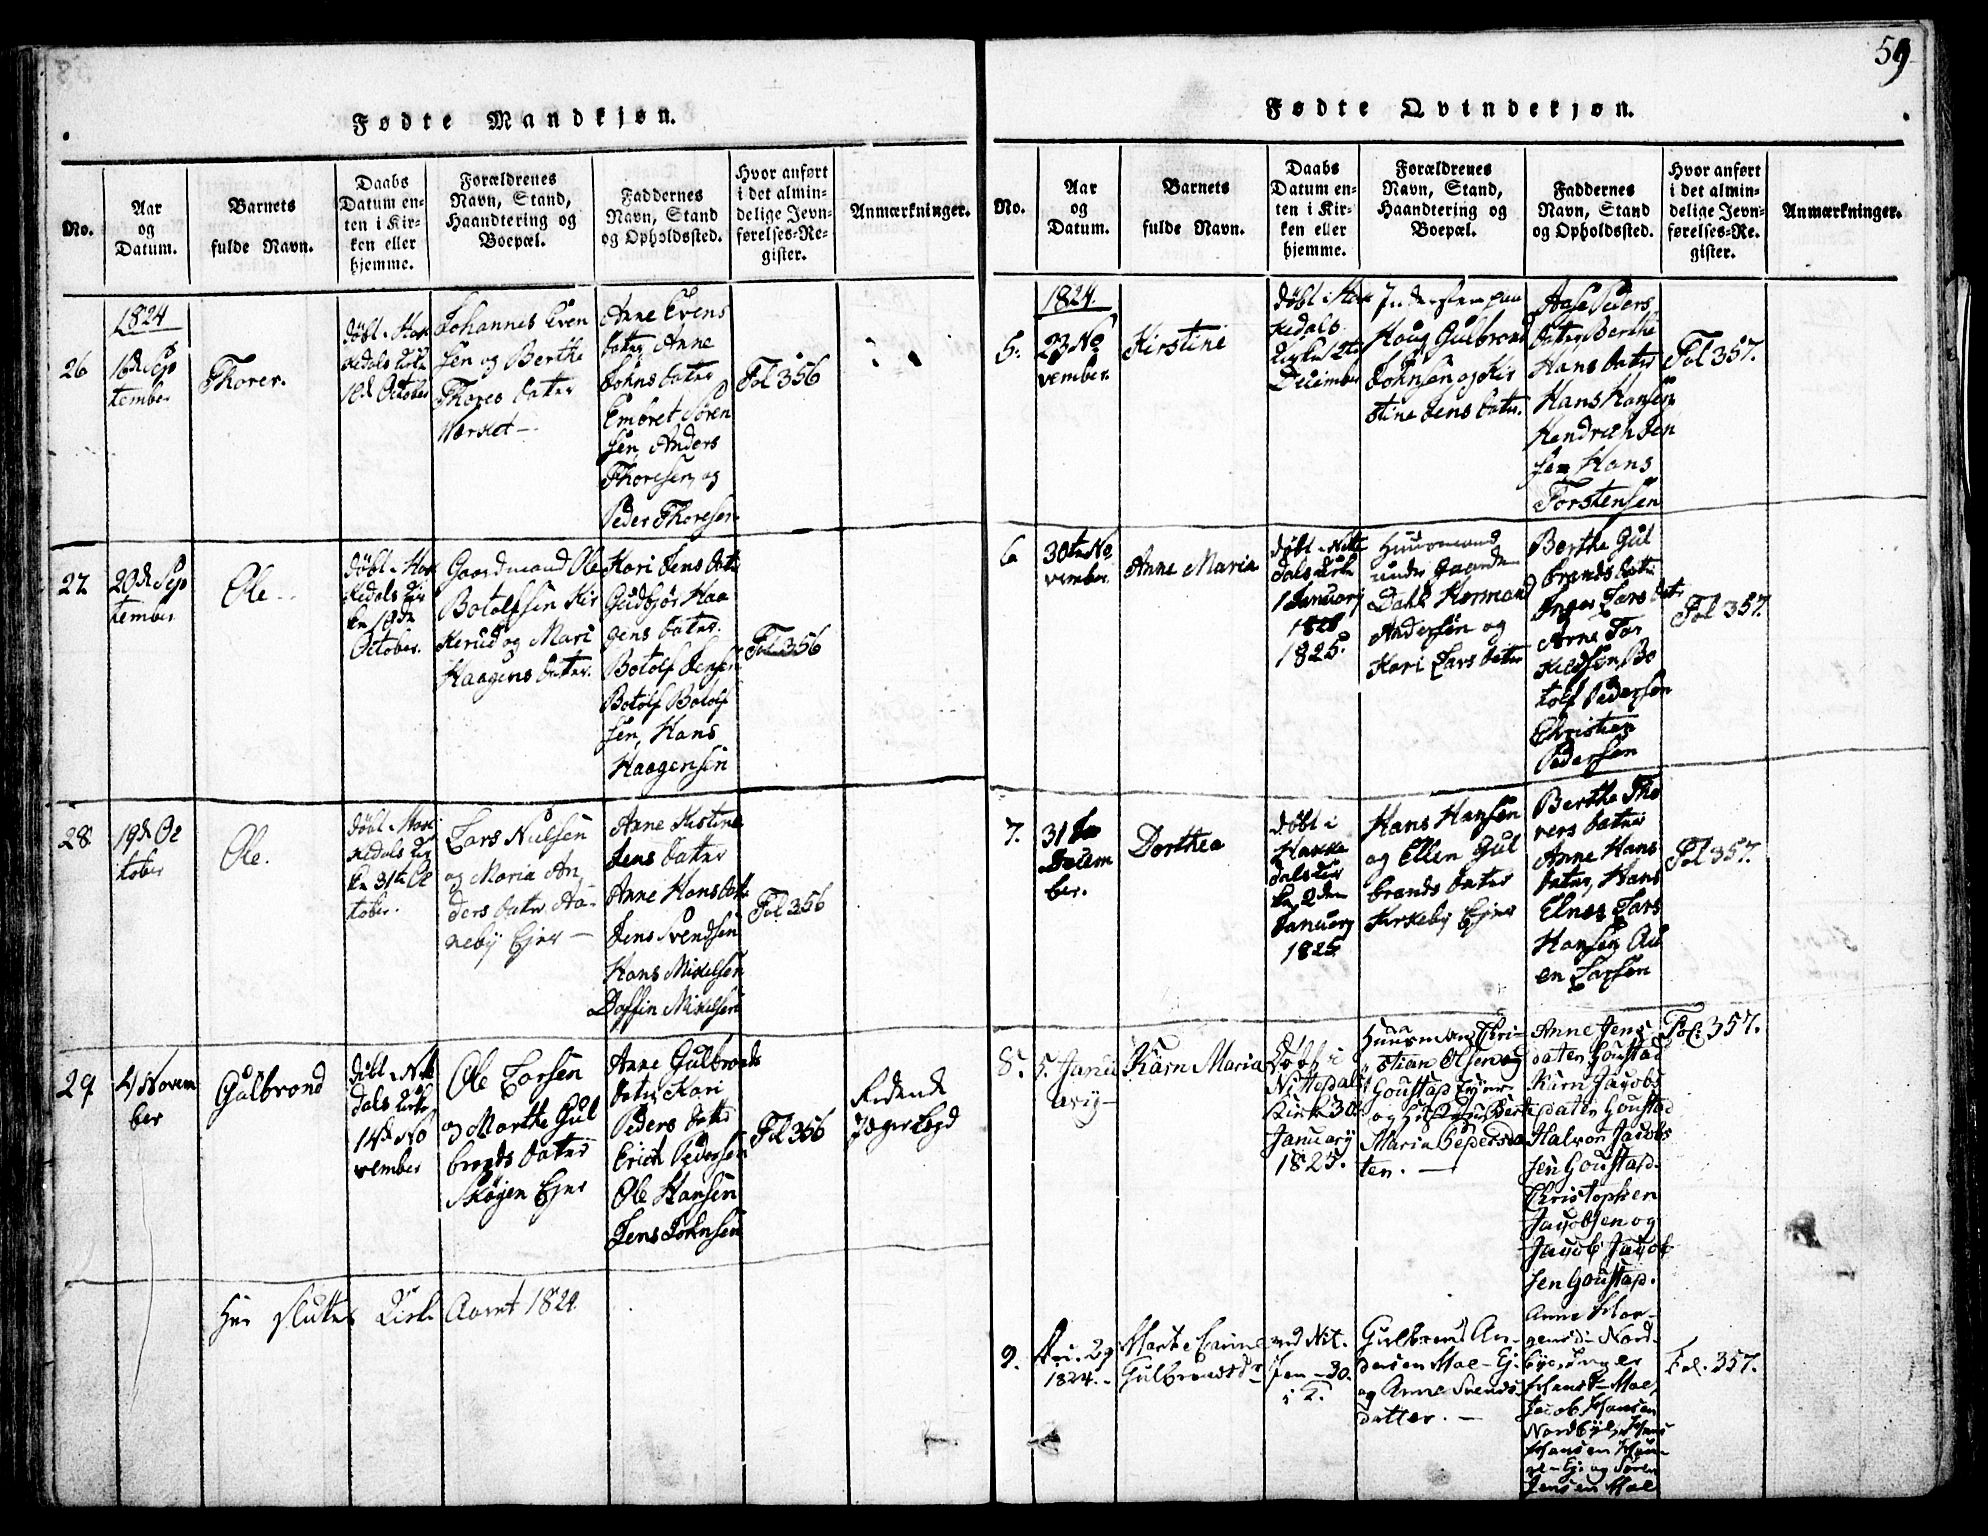 59
Fødte Mandkjøn.
No.
Aar
og
Datum.
Barnets
fulde Navn.
Daabs
Datum en-
ten i Kir-
ken eller
hjemme.
Forældrenes
Navn, Stand,
Haandtering og
Boepæl.
Faddernes
Navn, Stand
og Opholdssted.
Hvor anført
i det almin-
delige Jevn-
førelses-Re-
gister.
Anmærkninger.
26
1824
16de Sep
tember
Thorer.
døbt i Hak
kedals Kirke
18de October
Johannes Even
sen og Berthe
Thores datter
Værket –
Anne Evens
datter, Anne
Johns datter
Embret Sören
sen, Anders
Thoresen, og
Peder Thoresen
Fol 356
27
20de Sep
tember
Ole
døbt i Hak
kedals Kir
ke 18de
October.
Gaardmand Ole
Botolfsen Kir
kerud og Mari
Haagens datter.
Kari Jens datter
Gudbjør Haa
gens datter
Botolf Jensen
Botolf Botolf
sen, Hans
Haagensen
Fol 356
28
19de Oc
tober
Ole.
døbt i Hak
kedals Kir
ke 31te Oc
tober.
Lars Nielsen
og Maria An
ders datter Aa-
neby Ejer –
Anne Kistine
Jens datter
Anne Hans datter
Jens Svendsen
Hans Mikelsen
Daffin Mikelsen
Fol 356
29
4 Novem
ber
Gulbrand
døbt i Nitte
dals Kirke
14de No
vember
Ole Larsen
og Marthe Gul
brands datter
Skøgen Ejer
Anne Gulbrands
datter, Kari
Peders datter
Erich Pedersen
Ole Hansen
Jens Johnsen
Fol 356
Ridende
Jæger
Her slutter Kirke Aaret 1824.
Fødte Qvindekjøn.
No.
Aar
og
Datum.
Barnets
fulde Navn.
Daabs
Datum en-
ten i Kir-
ken eller
hjemme.
Forældrenes
Navn, Stand,
Haandtering og
Boepæl.
Faddernes
Navn, Stand
og Opholdssted.
Hvor anført
i det almin-
delige Jevn-
førelses-Re-
gister.
Anmærkninger.
5.
1824.
23 No
vember.
Kirstine
døbt i Hak
kedals
Kirke 12te
December
Indersten paa
Houg Gulbrand
Johnsen, og Kir
stine Jens datter.
Aase Peders
datter, Berthe
Hans datter
Hans Hansen
Hendrich Jen
sen, Hans
Torstensen
Fol 357.
6
30te No
vember
Anne Maria
døbt i Nitte
dals Kirke
1 January
1825.
Huusmand
under Gaarden
Dahl Herman
Andersen og
Kari Lars datter
Berthe Gul
brands datter
Inger Lars datter
Arne Tor
kildsen, Bo
tolf Pedersen
Christian
Pedersen
Fol 357.
7.
31
Decem
ber.
Dorthea
døbt i
Hakke
dals Kir
ke, 2den
January
1825
Hans Hansen
og Ellen Gul
brands datter
Kirkeby Ejer
Berthe Tho
rers datter
Anne Hans
datter, Hans
Elnes Lars
Hansen,
Larsen
Fol 357.
8.
5. Janu
ary –
Karn Maria
Døbt i
Nittedals
Kirke 30
January
1825.
Huusmand Chri-
stian Olsen
Goustad Eyer
og
Maria Pedersda
ter. –
Anne Jens
dater Goustad
Karn Jacobs
dater Goustad
Halvor Jacobs
sen Goustad.
Christophen
Jacobsen og
Jacob Jacob
sen Goustad.
Fol. 357.
9.
29
1824. –
Marte
Gulbrandsdr
ved Nit.
30.
Gulbrand An-
dersen Moe – Ej.
og Anne Svends
datter. –
Anne Haa-
gensd. – Nord-
bye, Inger
Hansd – Moe,
Jacob Hansen
Nordbye, Hans
Hansen
– Ej. og Sören
Jensen Moe
Fol. 357.